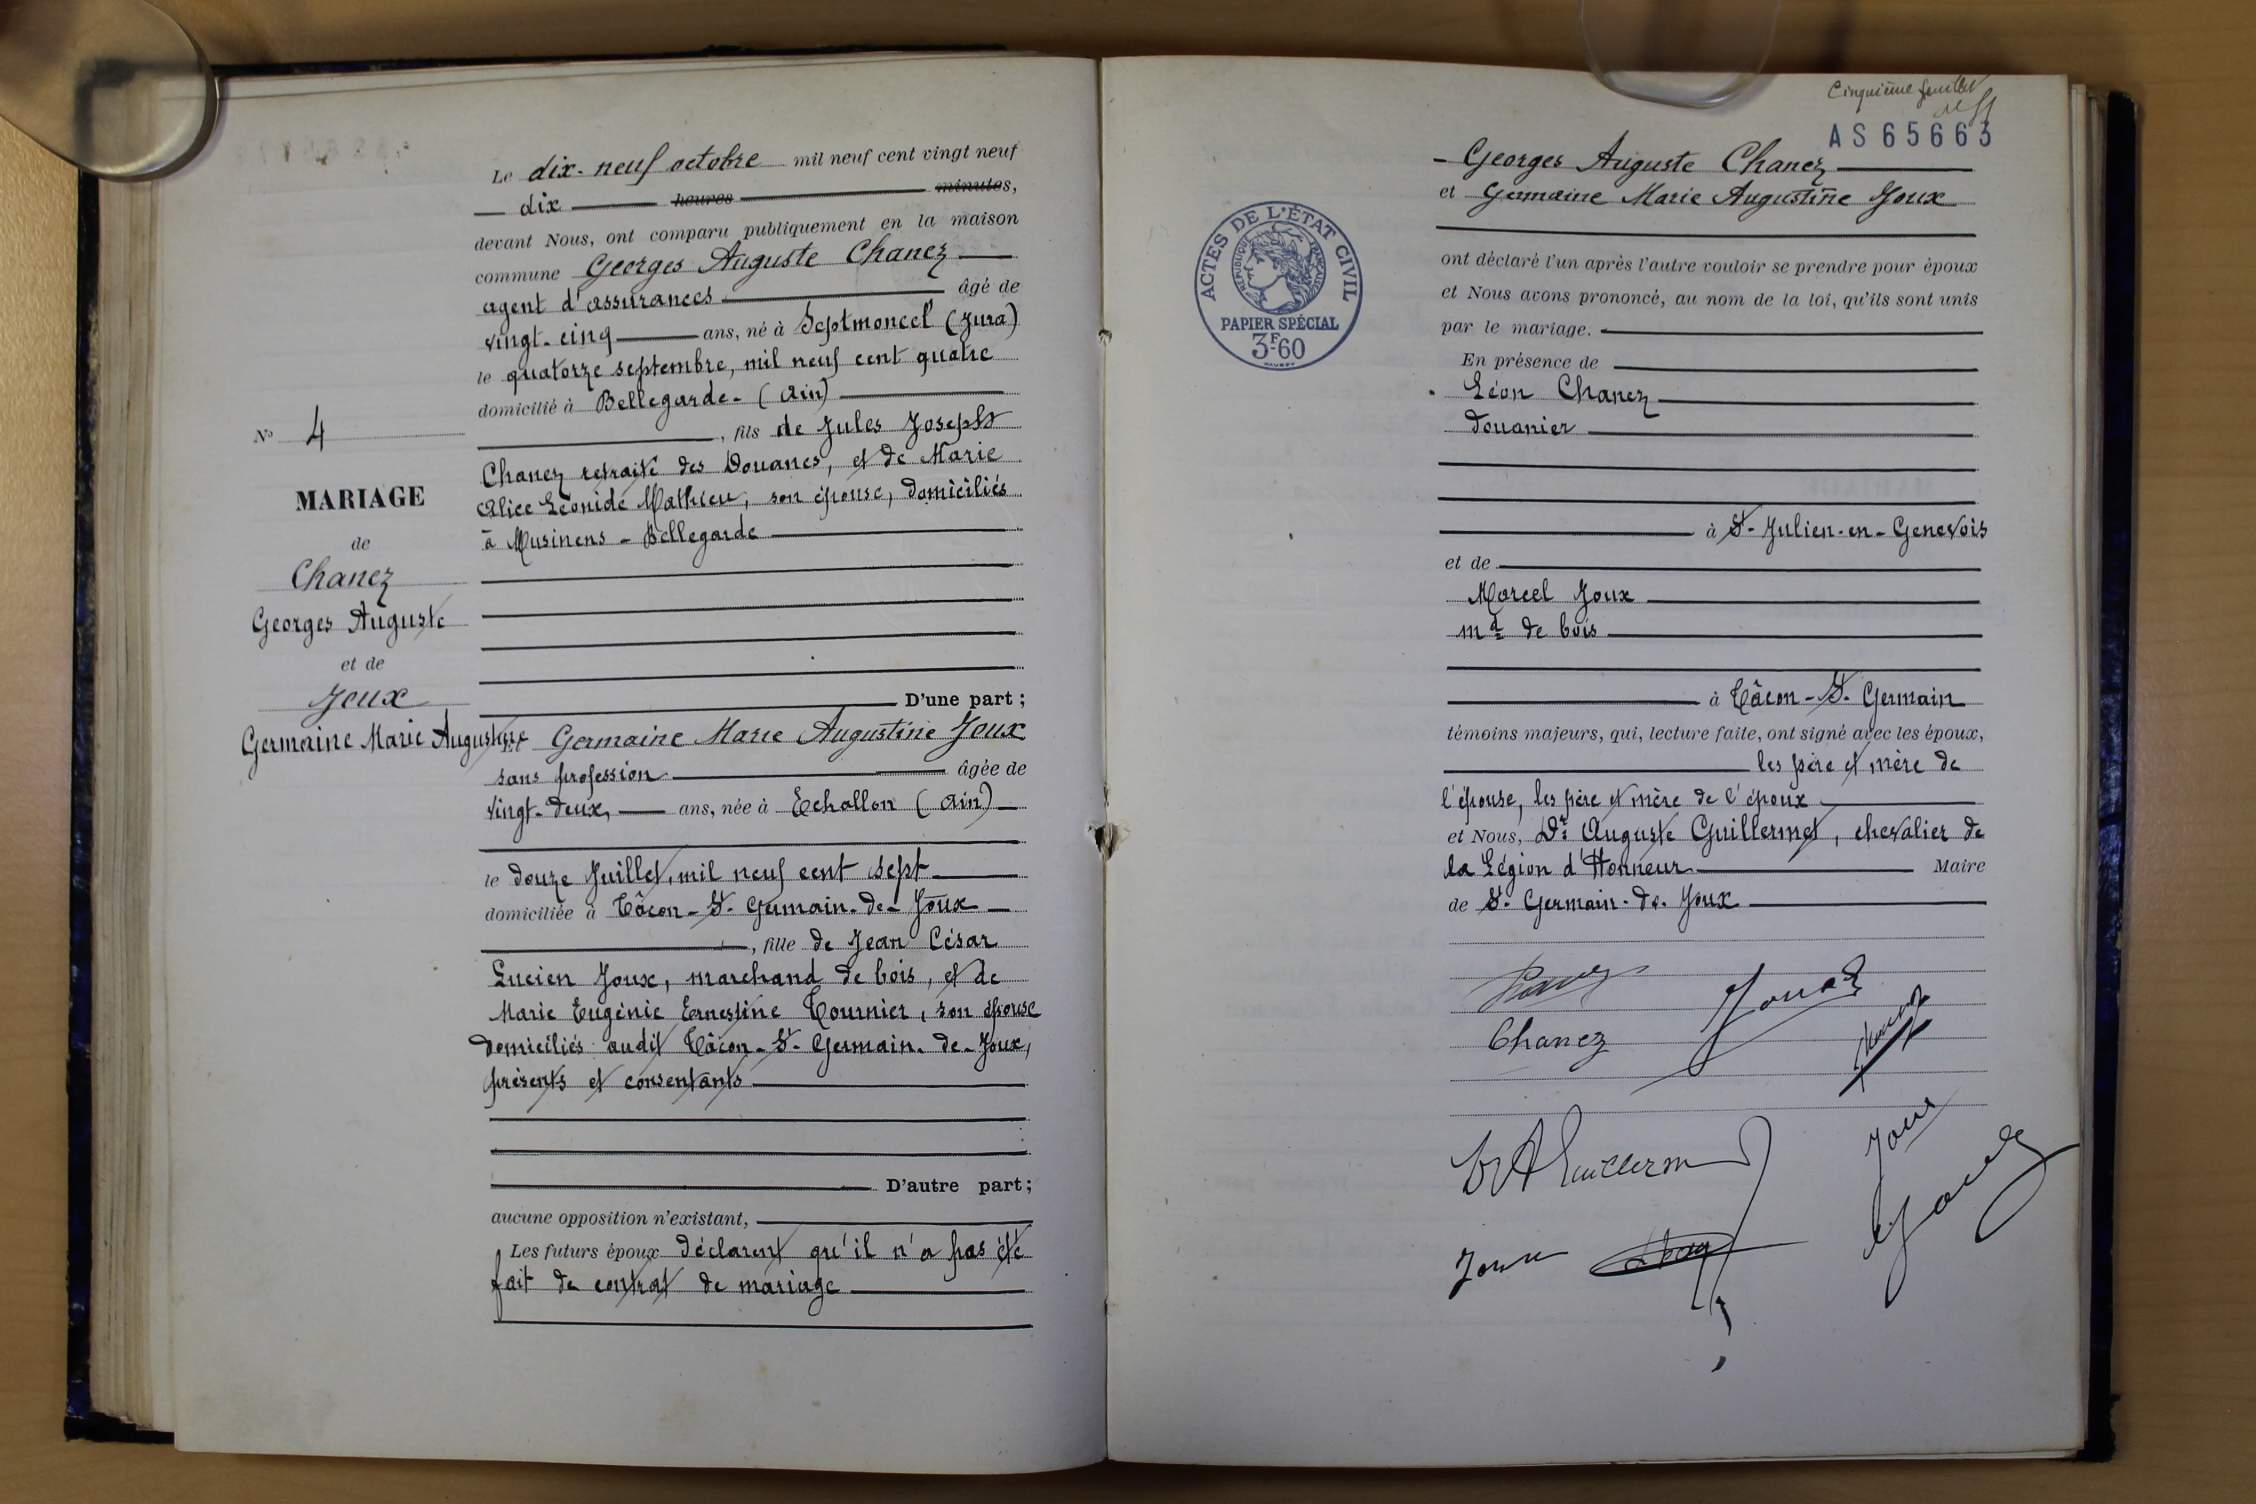 Le dix-neuf octobre mil neuf cent vingt neuf
dix heures minutes,
devant Nous, ont comparu publiquement en la maison
commune Georges Auguste Chanez
agent d'assurances âgé de
vingt-cinq ans, né à Septmoncel (Jura)
le quatorze septembre, mil neuf cent quatre
domicilié à Bellegarde - (Ain)
, fils de Jules Joseph
Chanez retraité des Douanes, et de Marie
Alice Léonide Mathieu, son épouse, domiciliés
à Musinens - Bellegarde
D'une part ;
Et Germaine Marie Augustine Joux
sans profession âgée de
vingt-deux ans, née à Echallon (Ain)
le douze Juillet, mil neuf cent sept
domiciliée à Tâcon - St. Germain-de-Joux
, fille de Jean César
Lucien Joux, marchand de bois, et de
Marie Eugénie Ernestine Tournier, son épouse
domiciliés audit Tâcon - St. Germain-de-Joux,
présents et consentants
D'autre part ;
aucune opposition n'existant,
Les futurs époux déclarent qu'il n'a pas été
fait de contrat de mariage
N° 4
MARIAGE
de
Chanez
Georges Auguste
et de
Joux
Germaine Marie Augustine
Cinquième feuillet
AS65663
ACTES DE L'ÉTAT CIVIL
RÉPUBLIQUE FRANÇAISE
PAPIER SPÉCIAL
3F.60
- Georges Auguste Chanez
et Germaine Marie Augustine Joux
ont déclaré l'un après l'autre vouloir se prendre pour époux
et Nous avons prononcé, au nom de la loi, qu'ils sont unis
par le mariage.
En présence de
Léon Chanez
douanier
à St-Julien-en-Genevois
et de
Marcel Joux
md de bois
à Tâcon - St. Germain
témoins majeurs, qui, lecture faite, ont signé avec les époux,
les père et mère de
l'épouse, les père et mère de l'époux
et Nous, Dr. Auguste Guillermet, chevalier de
la Légion d'Honneur Maire
de St. Germain-de-Joux
Chanez
Joux